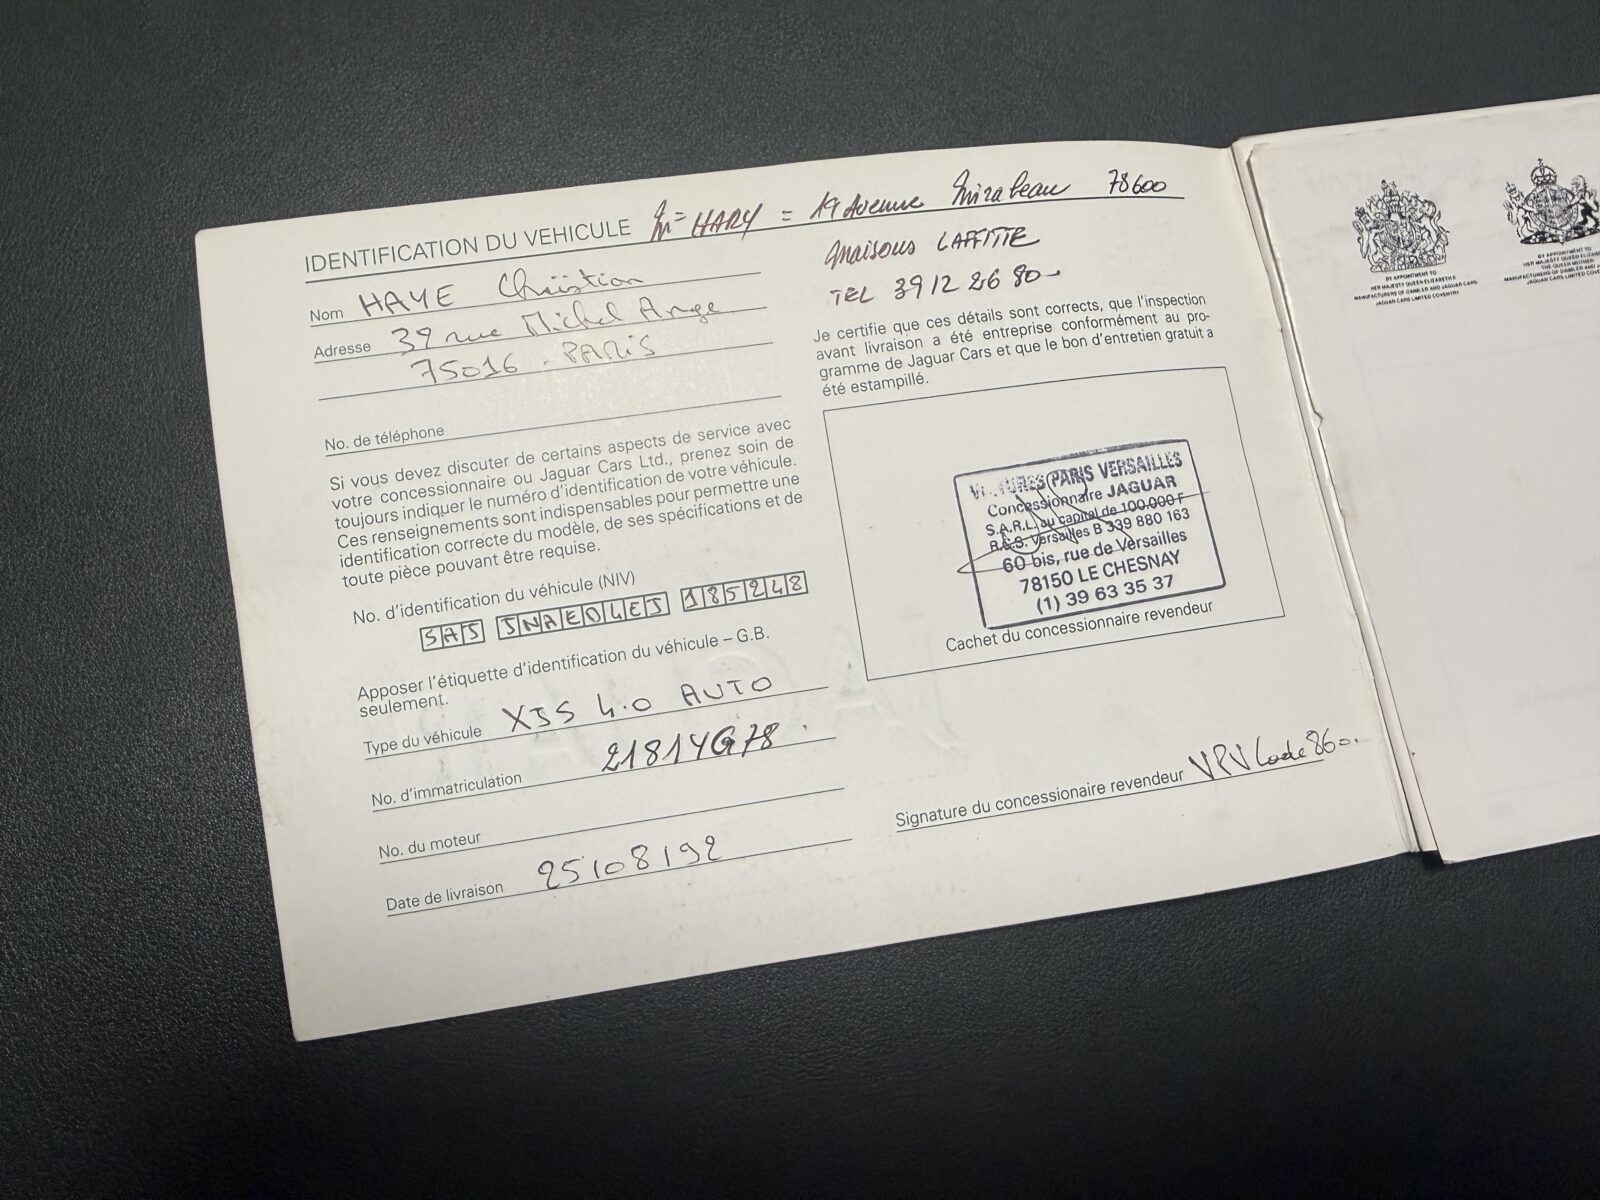 IDENTIFICATION DU VEHICULE Mr HARY = 19 Avenue Mirabeau 78600
Maisons LAFFITTE
TEL 39 12 26 80
Nom HAYE Christian
Adresse 39 rue Michel Ange
75016 - PARIS
No. de téléphone
Si vous devez discuter de certains aspects de service avec
votre concessionnaire ou Jaguar Cars Ltd., prenez soin de
toujours indiquer le numéro d'identification de votre véhicule.
Ces renseignements sont indispensables pour permettre une
identification correcte du modèle, de ses spécifications et de
toute pièce pouvant être requise.
No. d'identification du véhicule (NIV)
SAJ JNAEDLEJ 185248
Apposer l'étiquette d'identification du véhicule – G.B.
seulement.
Type du véhicule XJS 4.0 AUTO
No. d'immatriculation
No. du moteur
Date de livraison 25/08/92
Je certifie que ces détails sont corrects, que l'inspection
avant livraison a été entreprise conformément au pro-
gramme de Jaguar Cars et que le bon d'entretien gratuit a
été estampillé.
VOITURES PARIS VERSAILLES
Concessionnaire JAGUAR
S.A.R.L. au capital de 100.000 F
R.C.S. Versailles B 339 880 163
60 bis, rue de Versailles
78150 LE CHESNAY
(1) 39 63 35 37
Cachet du concessionnaire revendeur
Signature du concessionaire revendeur VPV Code 860.
BY APPOINTMENT TO
HER MAJESTY QUEEN ELIZABETH II
MANUFACTURERS OF DAIMLER AND JAGUAR CARS
JAGUAR CARS LIMITED COVENTRY
BY APPOINTMENT TO
HER MAJESTY QUEEN ELIZABETH
THE QUEEN MOTHER
MANUFACTURERS OF DAIMLER AND
JAGUAR CARS LIMITED